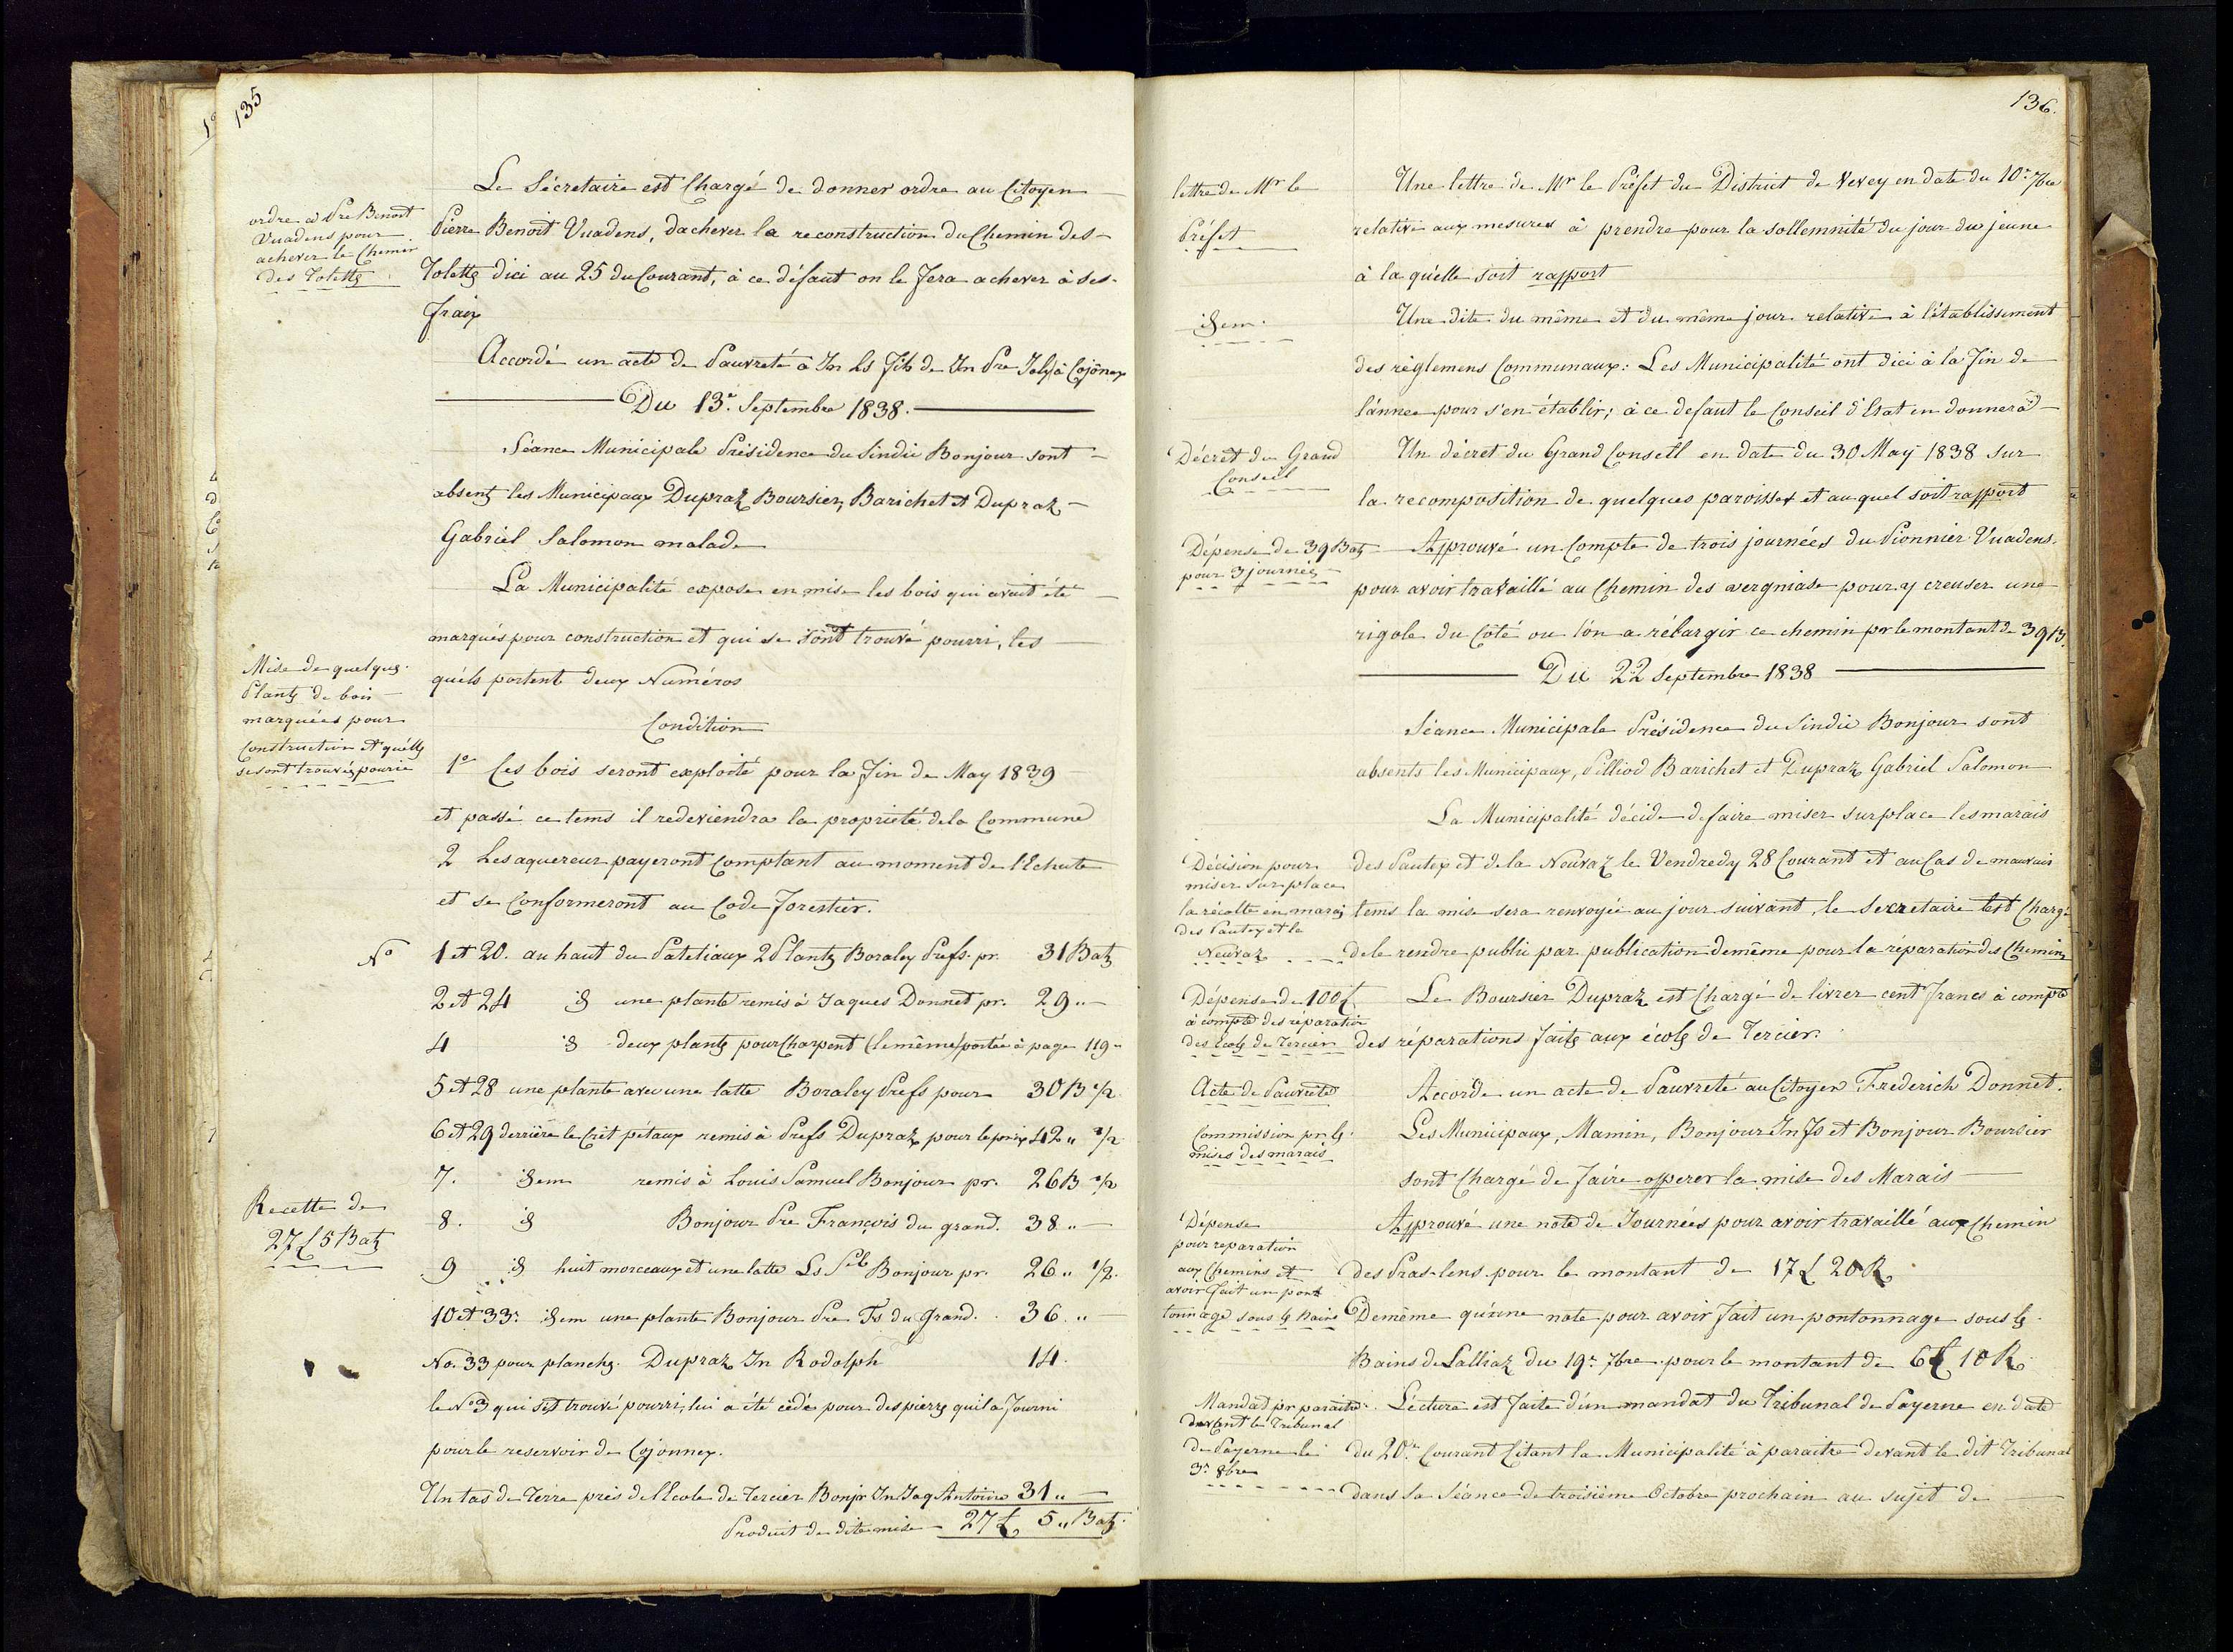 135
Le Sécretaire est Chargé de donner ordre au Citoyen
ordre à Pre Benoit
Vuadens pour
achever le Chemin
des Tolettes
Pierre Benoit Vuadens, dachever la reconstruction du Chemin des
Tolettes dici au 25 du Courant, à ce défaut on le fera achever à ses
fraix
Accordé un acte de Pauvreté à Jn Ls fils de Jn Pre Joly à Cojonnex
Du 13e. Septembre 1838.
Séance Municipale Présidence du Sindic Bonjour sont
absents les Municipaux Dupraz Boursier, Barichet et Dupraz
Gabriel Salomon malade
La Municipalité expose en mise les bois qui avait été
marqués pour construction et qui se sont trouvé pourri, les
quéls portent deux Numéros
Mise de quelques
Plantes de bois
marquées pour
Construction et quélles
se sont trouvées pourie
Condition
1o Ces bois seront exploité pour la fin de May 1839
et passé ce tems il redeviendra la proprieté dela Commune
2 Les aquereur payeront Comptant au moment de l'Echute
et se Conformeront au Code forestier.
No 1 et 20. au haut du Patetiaux 2 Plantes Boraley Prefs. pr. 31 Batz
2 et 24 id une plante remis à Jaques Donnet pr. 29 " -
4 id deux plantes pour Charpent (le même) portée à page 119 "
5 et 28 une plante avec une latte Boraley Prefs pour 30 B 1/2
6 et 29 derrière le Crêt pétaux remis à Prefs Dupraz pour le prix 42 " 1/2
7. idem remis à Louis Samuel Bonjour pr. 26 B 1/2
8. id Bonjour Pre François du grand. 38 " -
Recette de
27 £ 5 Batz
9 id huit morceaux et une latte Ls Sel Bonjour pr. 26 " 1/2.
10 et 33. idem une plante Bonjour Pre Fs du Grand. 36 " -
No. 33 pour planches. Dupraz Jn Rodolph 14.
le No 3 qui s'est trouvé pourri, lui a été cédé pour des pierres quil a fourni
pour le reservoir de Cojonnex.
Un tas de Terre près de l'Ecole de Tercier Bonjr Jn Jaq Antoine 31 " -
Produit de dite mise - 27 £ 5 " Batz.
136.
lettre de Mr le
Préfet
Une lettre de Mr le Préfet du District de Vevey en date du 10e 7bre
relative aux mesures à prendre pour la sollemnité du jour du jeune
à la quélle soit rapport
idem.
Une dite du même et du même jour relative à l'établissement
des réglemens Communaux: Les Municipalité ont dici à la fin de
lánnee pour s'en établir; à ce defaut le Conseil d'Etat en donnera
Décret du Grand
Conseil
Un décret du Grand Conseil en date du 30 May 1838 sur
la recomposition de quelques paroisses et au quel soit rapport
Dépense de 39 Batz
pour 3 journées
Approuvé un Compte de trois journées du Pionnier Vuadens.
pour avoir travaillé au Chemin des vergniase pour y creuser une
rigole du Côté ou l'ón a rélargir ce chemin pr le montant de 39 B.
Du 22 Septembre 1838
Séance Municipale Présidence du Sindic Bonjour sont
absents les Municipaux, Pilliod Barichet et Dupraz Gabriel Salomon
La Municipalité décide de faire miser sur place les marais
Décision pour
miser sur place
la récolte en marais
des Pautex et la
Neuvaz
des Pautex et dela Neuvaz le Vendredy 28 Courant et au Cas de mauvais
tems la mise sera renvoyée au jour suivant, le Secretaire est Chargé
de le rendre public par publication demême pour la réparation des Chemins
Dépense de 100 £
à compte des réparation
des Ecoles de Tercier
Le Boursier Dupraz est Chargé de livrer cent francs à compte
des réparations faites aux écoles de Tercier.
Acte de Pauvreté
Accordé un acte de Pauvreté au Citoyen Frederich Donnet.
Commission pr les
mises des marais
Les Municipaux, Mamin, Bonjour Jn Fs et Bonjour Boursier
sont Chargé de faire opperer la mise des Marais
Dépense
pour reparation
aux Chemins et
avoir fait un pont
tonnage sous les Bains
Approuvé une note de Journées pour avoir travaillé aux Chemin
des Pras-lens pour le montant de 17 £ 20 R
Demême qu'une note pour avoir fait un pontonnage sous les
Bains de Lalliaz du 19e 7bre pour le montant de 6 £ 10 R
Mandat pr paraitre
devant le Tribunal
de Payerne le
3e 8bre
Lécture est faite d'un mandat du Tribunal de Payerne en date
du 20e. Courant Citant la Municipalité à paraitre devant le dit Tribunal
dans sa Séance de troisième Octobre prochain au sujet de